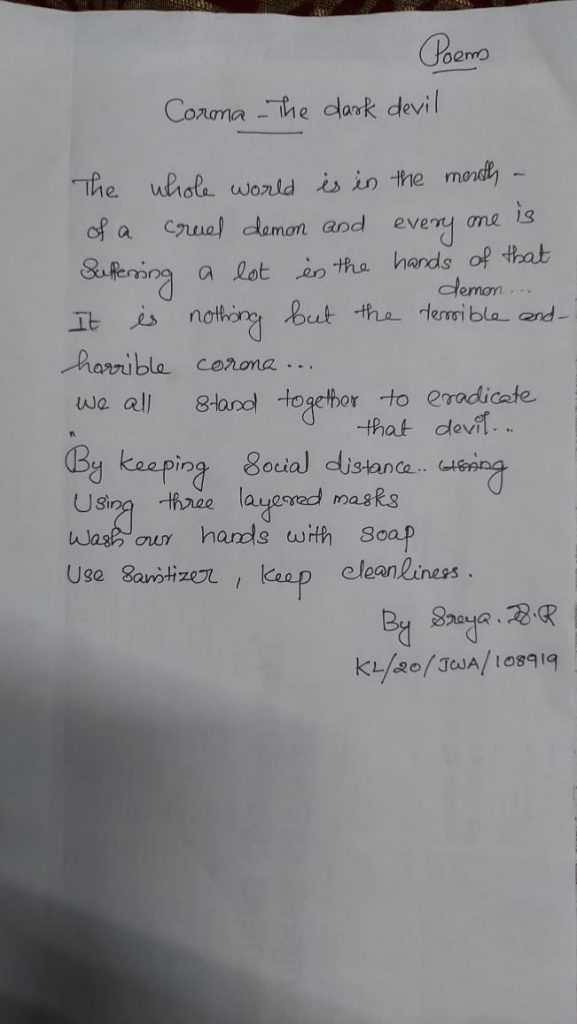 Poems
Corona - The dark devil
The whole world is in the mouth -
of a cruel demon and every one is
Suffering a lot in the hands of that
demon...
It is nothing but the terrible and -
horrible corona...
We all stand together to eradicate
that devil...
By keeping Social distance..
Using three layered masks
Wash our hands with soap
Use Sanitizer, keep cleanliness.
By Sreya.
KL/20/JWA/108919